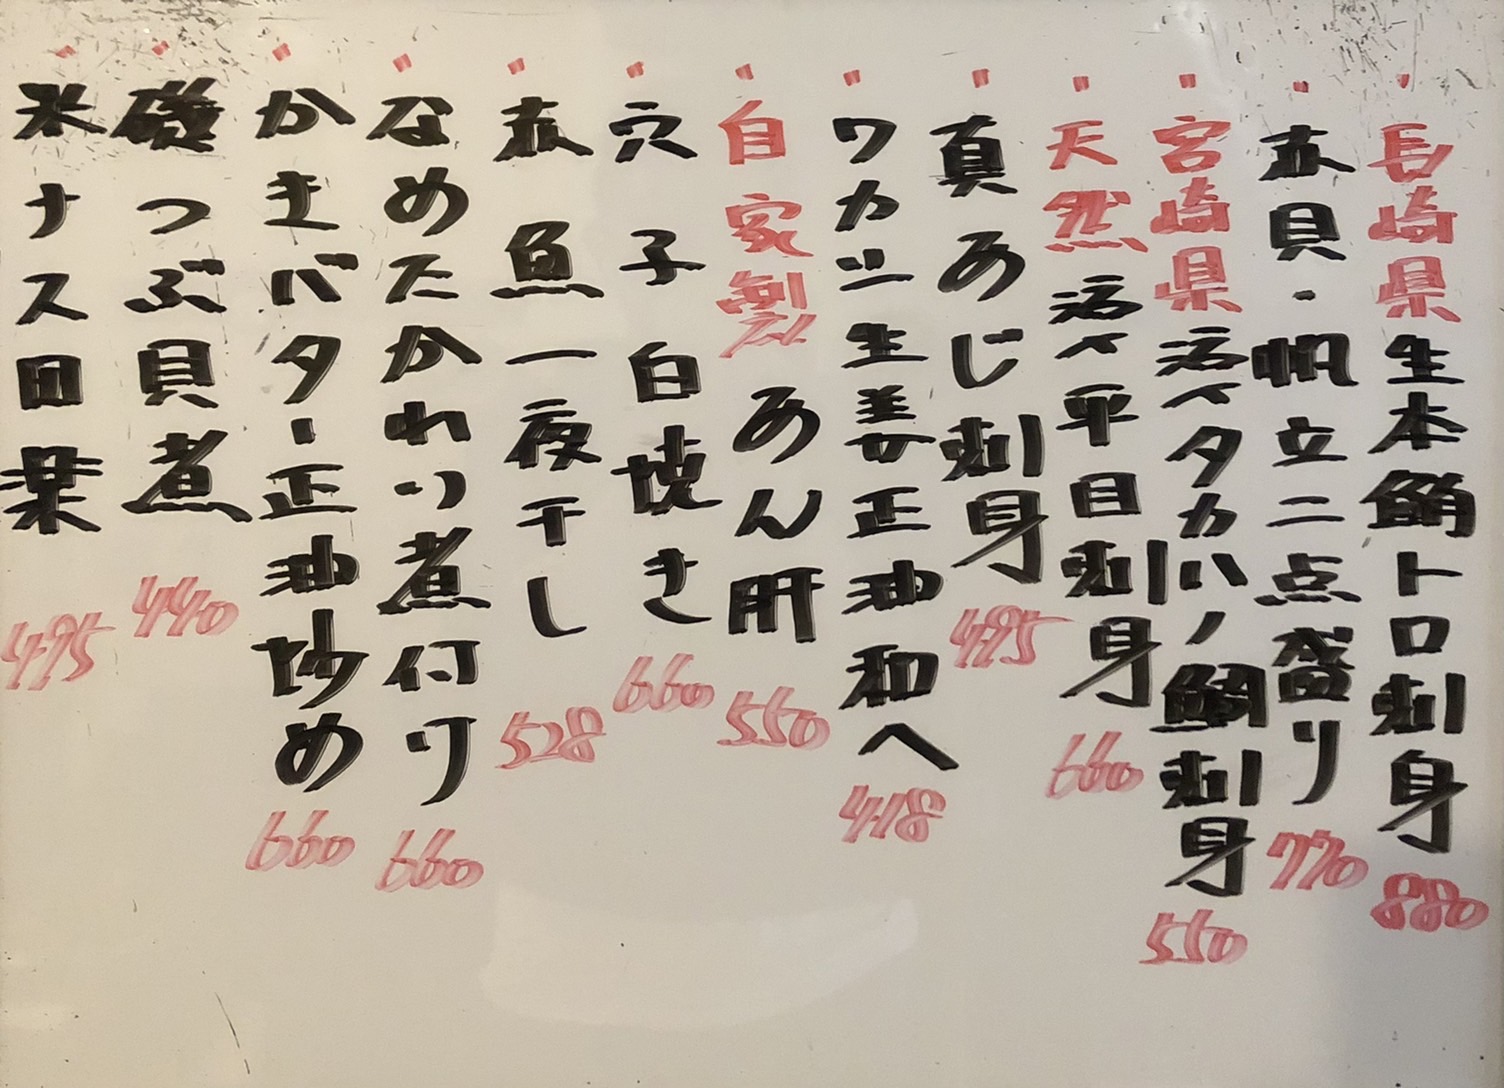 長崎県生本鮪トロ刺身 880
赤貝・帆立二点盛り 770
宮崎県活〆タカハノ鯛刺身 550
天然活〆平目刺身 660
真あじ刺身 495
ワカメ生姜正油和へ 418
自家製あん肝 550
穴子白焼き 660
赤魚一夜干し 528
なめたかれい煮付け 660
かきバター正油炒め 660
磯つぶ貝煮 440
米ナス田楽 495